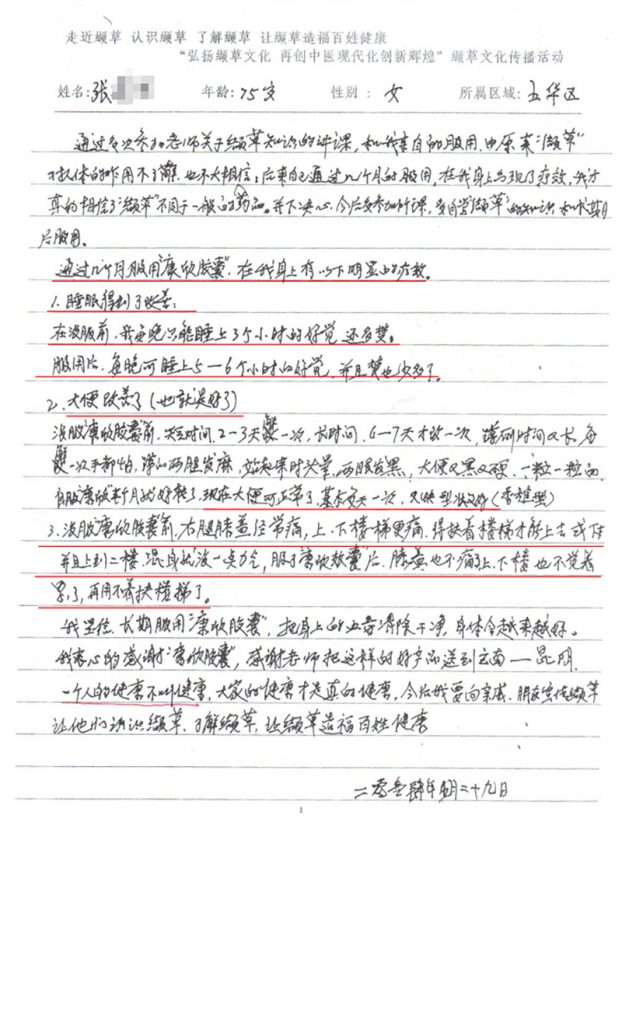 走近缬草 认识缬草 了解缬草 让缬草造福百姓健康
“弘扬缬草文化 再创中医现代化创新辉煌”缬草文化传播活动
姓名:张 年龄:75岁 性别: 女 所属区域:五华区
通过多次参加老师关于缬草知识的讲课,和我亲自的服用.由原来“缬草”
对机体的作用不了解.也不太相信,后来自己通过几个月的服用,在我身上出现了疗效,我才
真的相信了“缬草”不同于一般的药品.并下决心,今后多参加听课,多自学“缬草”的知识 和长期
服用。
通过几个月服用“康欣胶囊”,在我身上有以下明显的疗效.
1.睡眠得到了改善:
在没服前,我每晚只能睡上3个小时的好觉 还多梦。
服用后.每晚可睡上5—6个小时的好觉,并且梦也少多了。
2.大便改善了(也就是好了)
没服“康欣胶囊”前,短时间,2—3天一次,长时间,6—7天才一次,蹲厕时间又长,每
一次手都怕,蹲的两腿发麻,站起来时头晕,两眼发黑,大便又黑又硬.一粒一粒的
自服“康欣”半个月就好转了,现在大便可正常了.基本每天一次.又成型状又好(香蕉型)
3.没服“康欣胶囊”前,右腿膝盖经常痛,上.下楼梯更痛.得扶着楼梯才能上去或下
并且上到二楼.混身就没一点力气,服了康欣胶囊后.膝盖也不痛了,上.下楼也不觉着
累了,再用不着扶楼梯了。
我坚信,长期服用“康欣胶囊”,把身上的 毒清除干净,身体会越来越好。
我衷心的感谢“康欣胶囊”,感谢老师把这样的好产品送到云南—昆明.
一个人的健康不叫健康,大家的健康才是真的健康,今后我要向亲戚.朋友宣传缬草
让他们认识缬草,了解缬草,让缬草造福百姓健康
二零 年 月二十九日
1